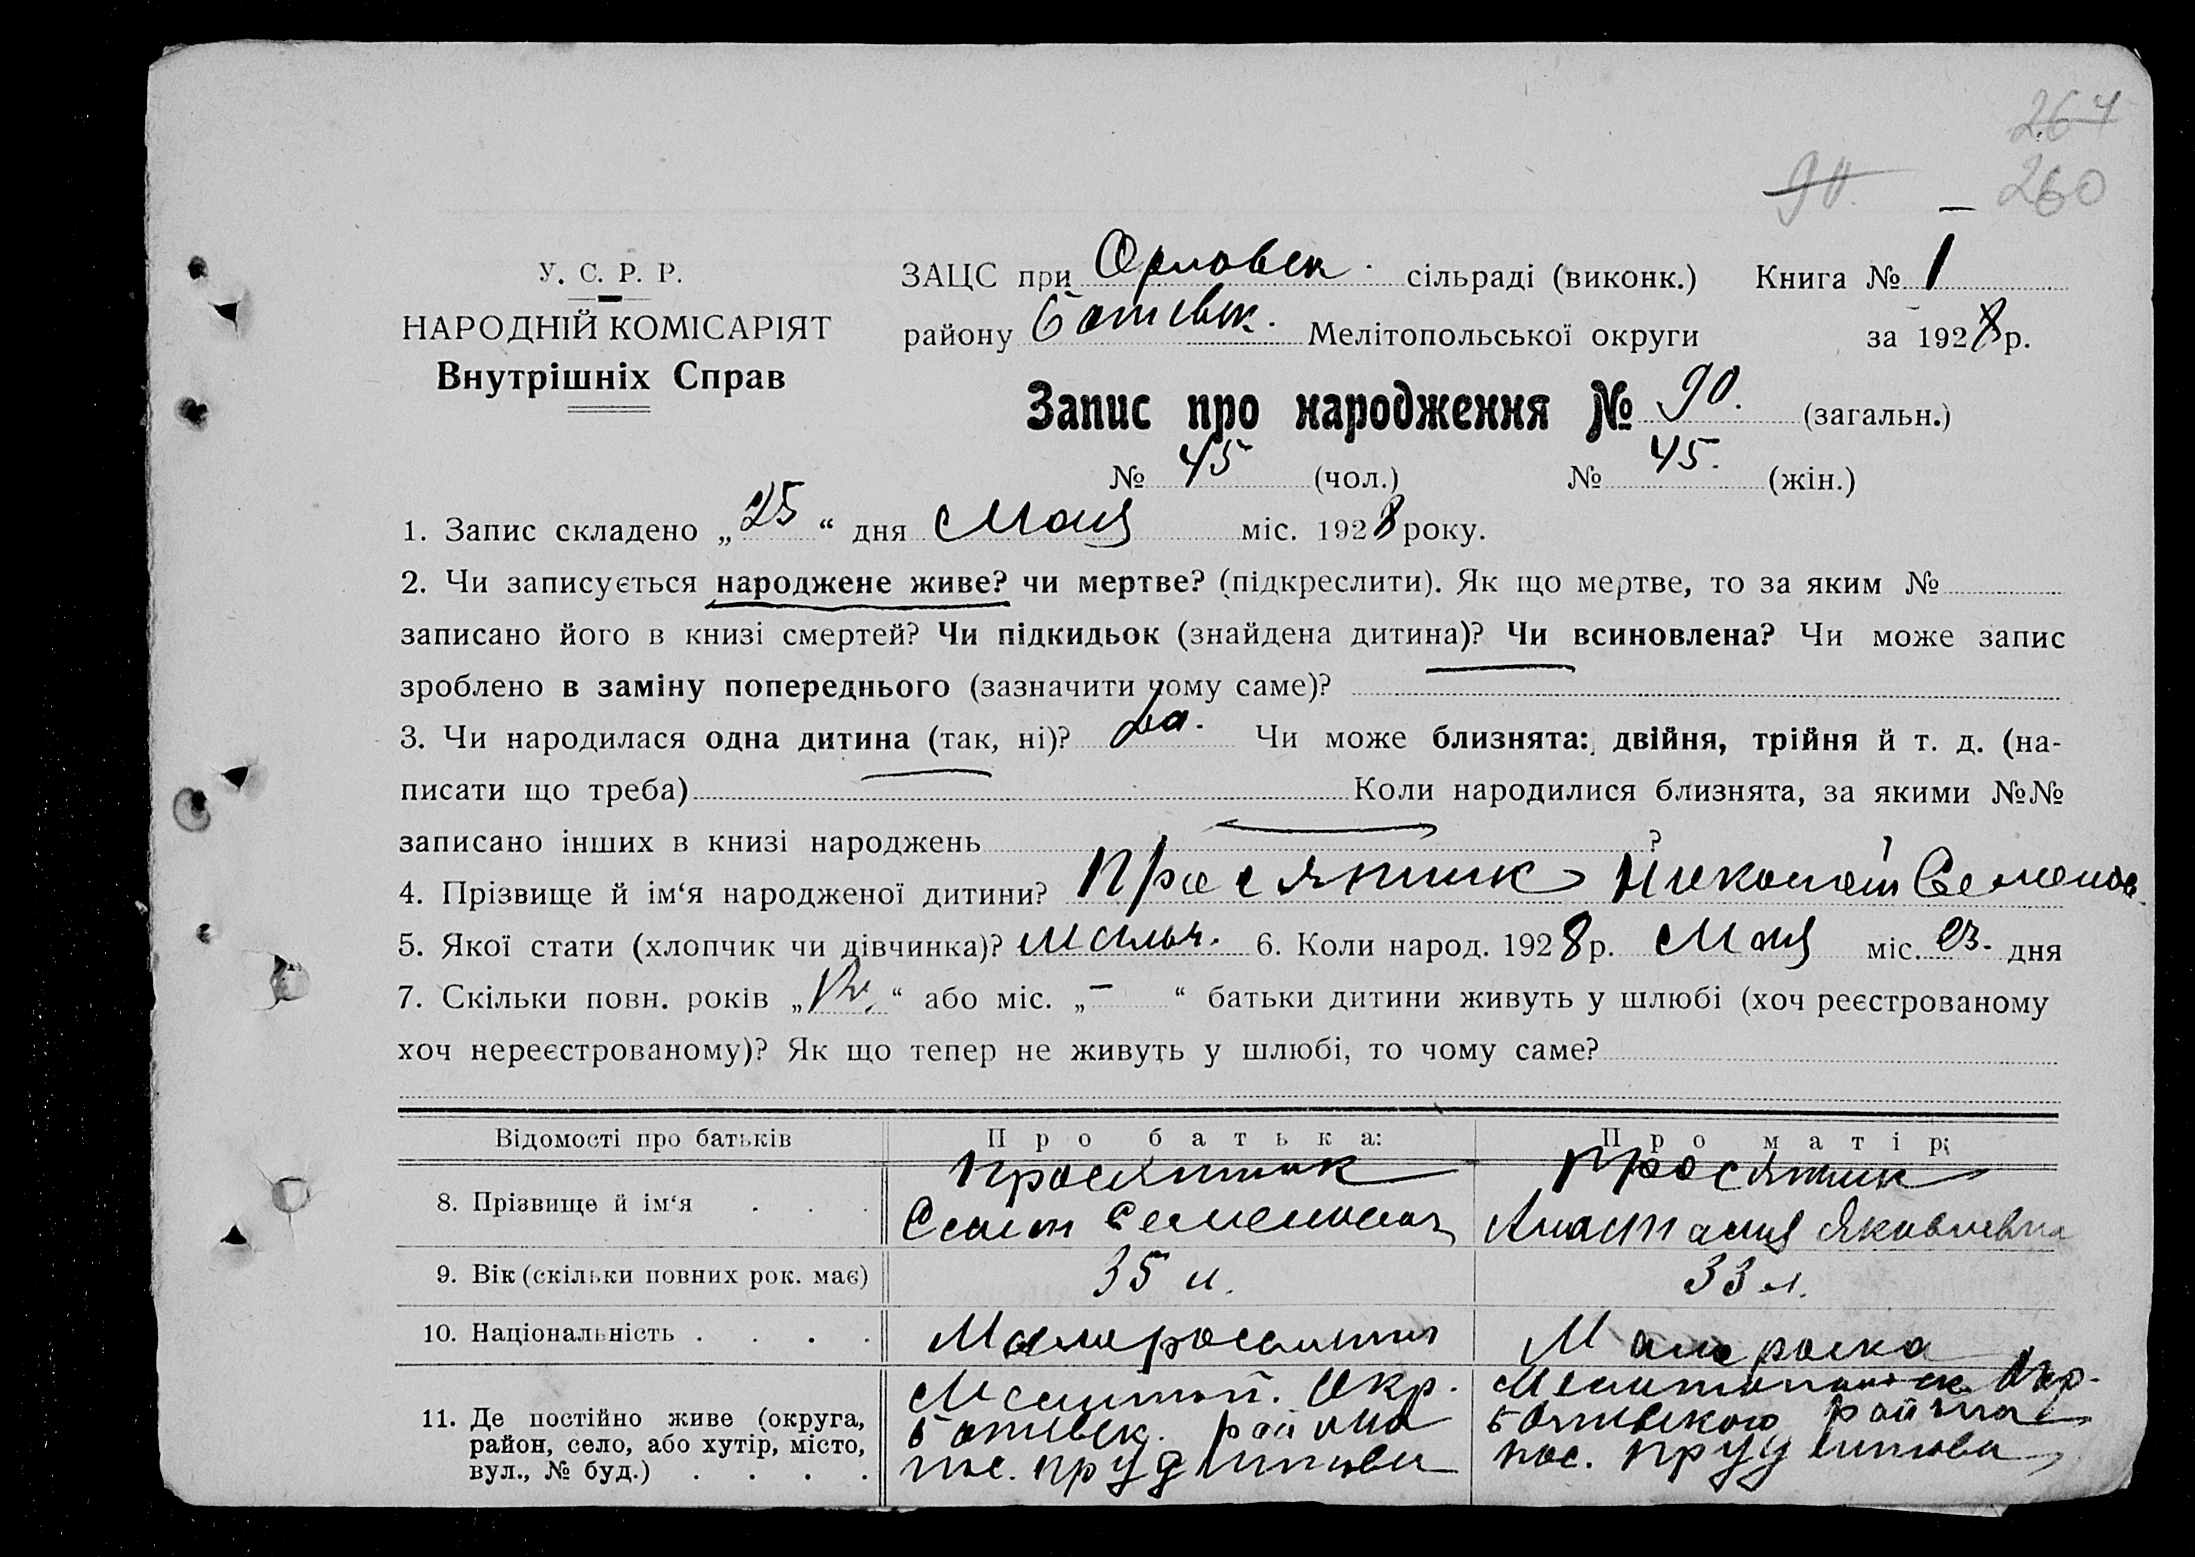 264
90. 260
У. С. Р. Р.
НАРОДНІЙ КОМІСАРІЯТ
Внутрішніх Справ
ЗАЦС при Орловск. сільраді (виконк.) Книга № 1
району Ботиевск. Мелітопольської округи за 1928 р.
Запис про народження № 90. (загальн.)
№ 45 (чол.) № 45. (жін.)
1. Запис складено „25“ дня Мая міс. 1928 року.
2. Чи записується народжене живе? чи мертве? (підкреслити). Як що мертве, то за яким №
записано його в книзі смертей? Чи підкидьок (знайдена дитина)? Чи всиновлена? Чи може запис
зроблено в заміну попереднього (зазначити чому саме)? —
3. Чи народилася одна дитина (так, ні)? Да. Чи може близнята: двійня, трійня й т. д. (на-
писати що треба) — Коли народилися близнята, за якими №№
записано інших в книзі народжень — ?
4. Прізвище й ім‘я народженої дитини? Просяник Николай Семенов.
5. Якої стати (хлопчик чи дівчинка)? Мальч. 6. Коли народ. 1928 р. Мая міс. 23. дня
7. Скільки повн. років „ “ або міс. „–“ батьки дитини живуть у шлюбі (хоч реєстрованому
хоч нереєстрованому)? Як що тепер не живуть у шлюбі, то чому саме?
Відомості про батьків Про батька: Про матір:
8. Прізвище й ім‘я . . . Просяник Семен Семенович Просяник Анастасия Яковлевна
9. Вік (скільки повних рок. має) 35 л. 33 л.
10. Національність . . . . Малоросиянин Малороска
11. Де постійно живе (округа, Мелитоп. Окр. Мелитопольск. Окр.
район, село, або хутір, місто, Ботиевск. района Ботиевского района
вул., № буд.) . . . . пос. пос.